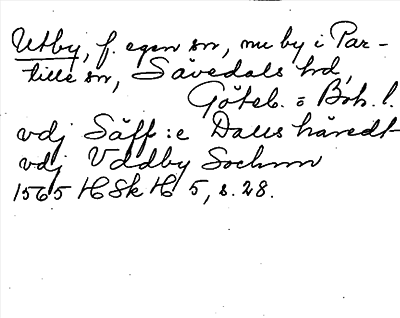 Utby, f. egen sn, nu by i Par-
tille sn, Sävedals hd,
Göteb. o Boh. l.
vdj Säff:e Dalls häredt
vdj Vddby Sochnn
1565 HSkH 5, s. 28.